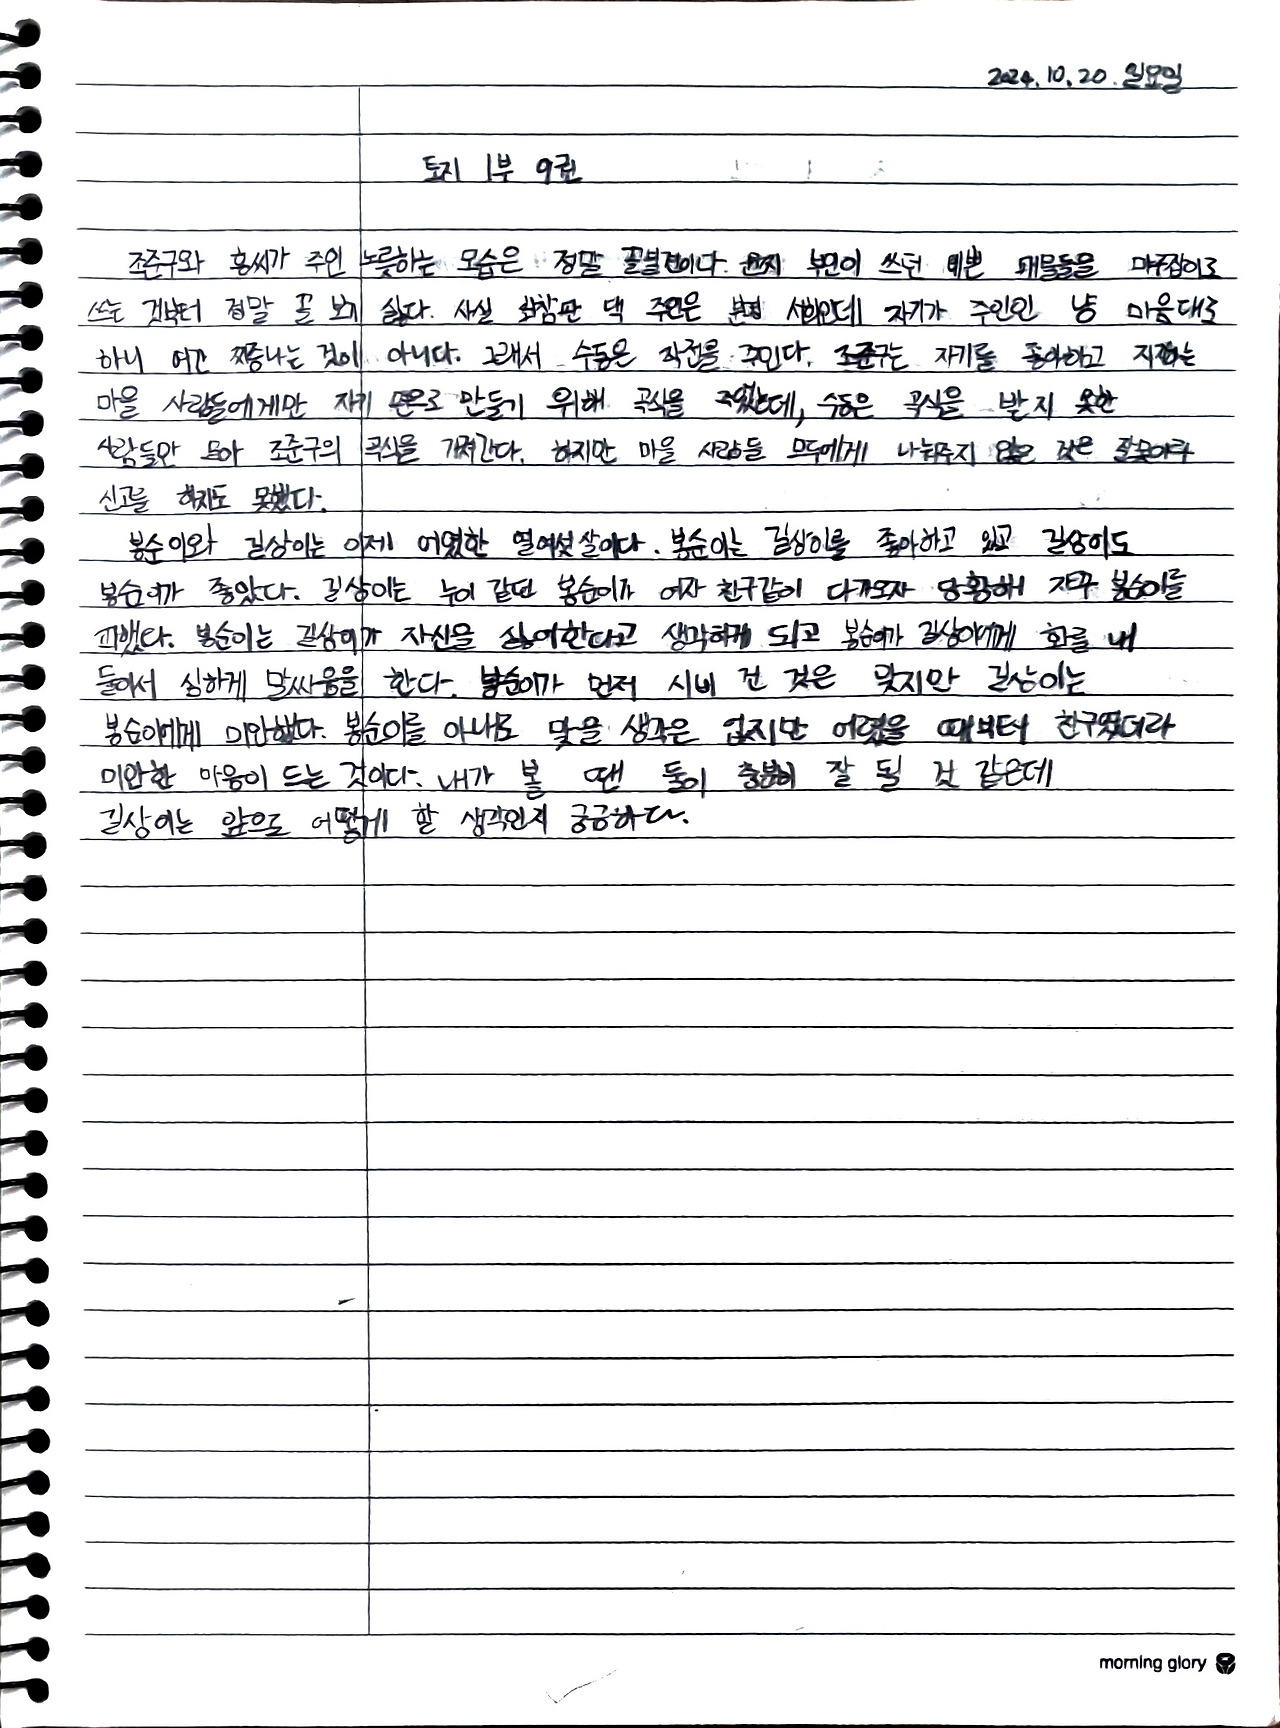 2024. 10. 20. 일요일
토지 1부 9권
조준구와 홍씨가 주인 노릇하는 모습은 정말 꼴불견이다. 윤씨 부인이 쓰던 예쁜 패물들을 마구잡이로
쓰는 것부터 정말 꼴 보기 싫다. 사실 최참판 댁 주인은 분명 서희인데 자기가 주인인 냥 마음대로
하니 여간 짜증나는 것이 아니다. 그래서 수동은 작전을 꾸민다. 조준구는 자기를 좋아하고 지지하는
마을 사람들에게만 자기 편으로 만들기 위해 곡식을 주었는데, 수동은 곡식을 받지 못한
사람들만 모아 조준구의 곡식을 가져간다. 하지만 마을 사람들 모두에게 나눠주지 않은 것은 잘못이라
신고를 하지도 못했다.
봉순이와 길상이는 이제 어엿한 열여섯살이다. 봉순이는 길상이를 좋아하고 있고 길상이도
봉순이가 좋았다. 길상이는 누이 같던 봉순이가 여자 친구같이 다가오자 당황해 자꾸 봉순이를
피했다. 봉순이는 길상이가 자신을 싫어한다고 생각하게 되고 봉순이가 길상이에게 화를 내
둘이서 심하게 말싸움을 한다. 봉순이가 먼저 시비 건 것은 맞지만 길상이는
봉순이에게 미안했다. 봉순이를 아내로 맞을 생각은 없지만 어렸을 때부터 친구였더라
미안한 마음이 드는 것이다. 내가 볼 땐 둘이 충분히 잘 될 것 같은데
길상이는 앞으로 어떻게 할 생각인지 궁금하다.
morning glory